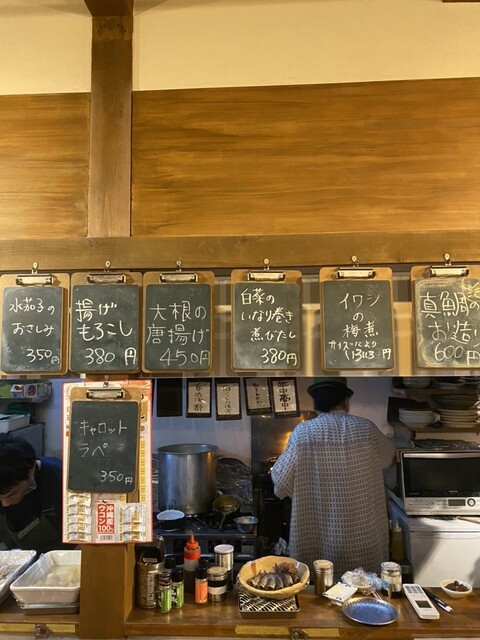 水茄子の
おさしみ
350円
揚げ
もろこし
380円
大根の
唐揚げ
450円
白菜の
いなり巻き
煮びたし
380円
イワシ
の
梅煮
サイズにより
いろいろ円
真鯛の
お造り
600円
キャロット
ラペ
350円
沖縄
ウコン
100%